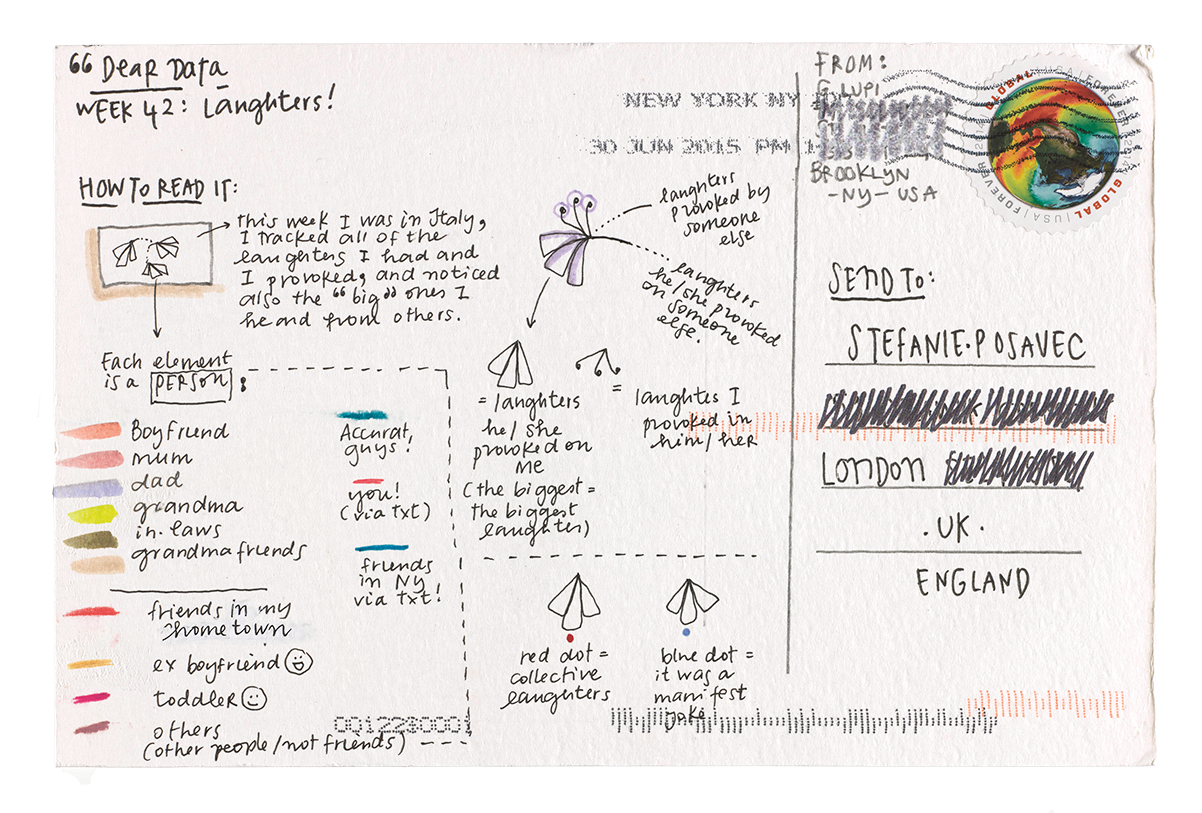 “ Dear Data
WEEK 42: Laughters!
HOW TO READ IT:
this week I was in Italy,
I tracked all of the
laughters I had and
I provoked, and noticed
also the “big” ones I
heard from others.
Each element
is a PERSON:
Boyfriend
mum
dad
grandma
in.laws
grandma friends
friends in my
hometown
ex boyfriend
toddler
others
(other people/not friends)
Accurat,
guys!
you!
(via txt)
friends
in NY
via txt!
laughters
provoked by
someone
else
laughters
he/she provoked
on someone
else.
= laughters
he/she
provoked on
me
(the biggest =
the biggest
laughter)
=
laughtes I
provoked in
him/her
red dot =
collective
laughters
blue dot =
it was a
manifest
joke
NEW YORK NY
30 JUN 2015 PM 1
FROM:
G. LUPI
BROOKLYN
-NY- USA
GLOBAL | USA | FOREVER
GLOBAL | USA | FOREVER
SEND TO:
STEFANIE.POSAVEC
LONDON
.UK.
ENGLAND